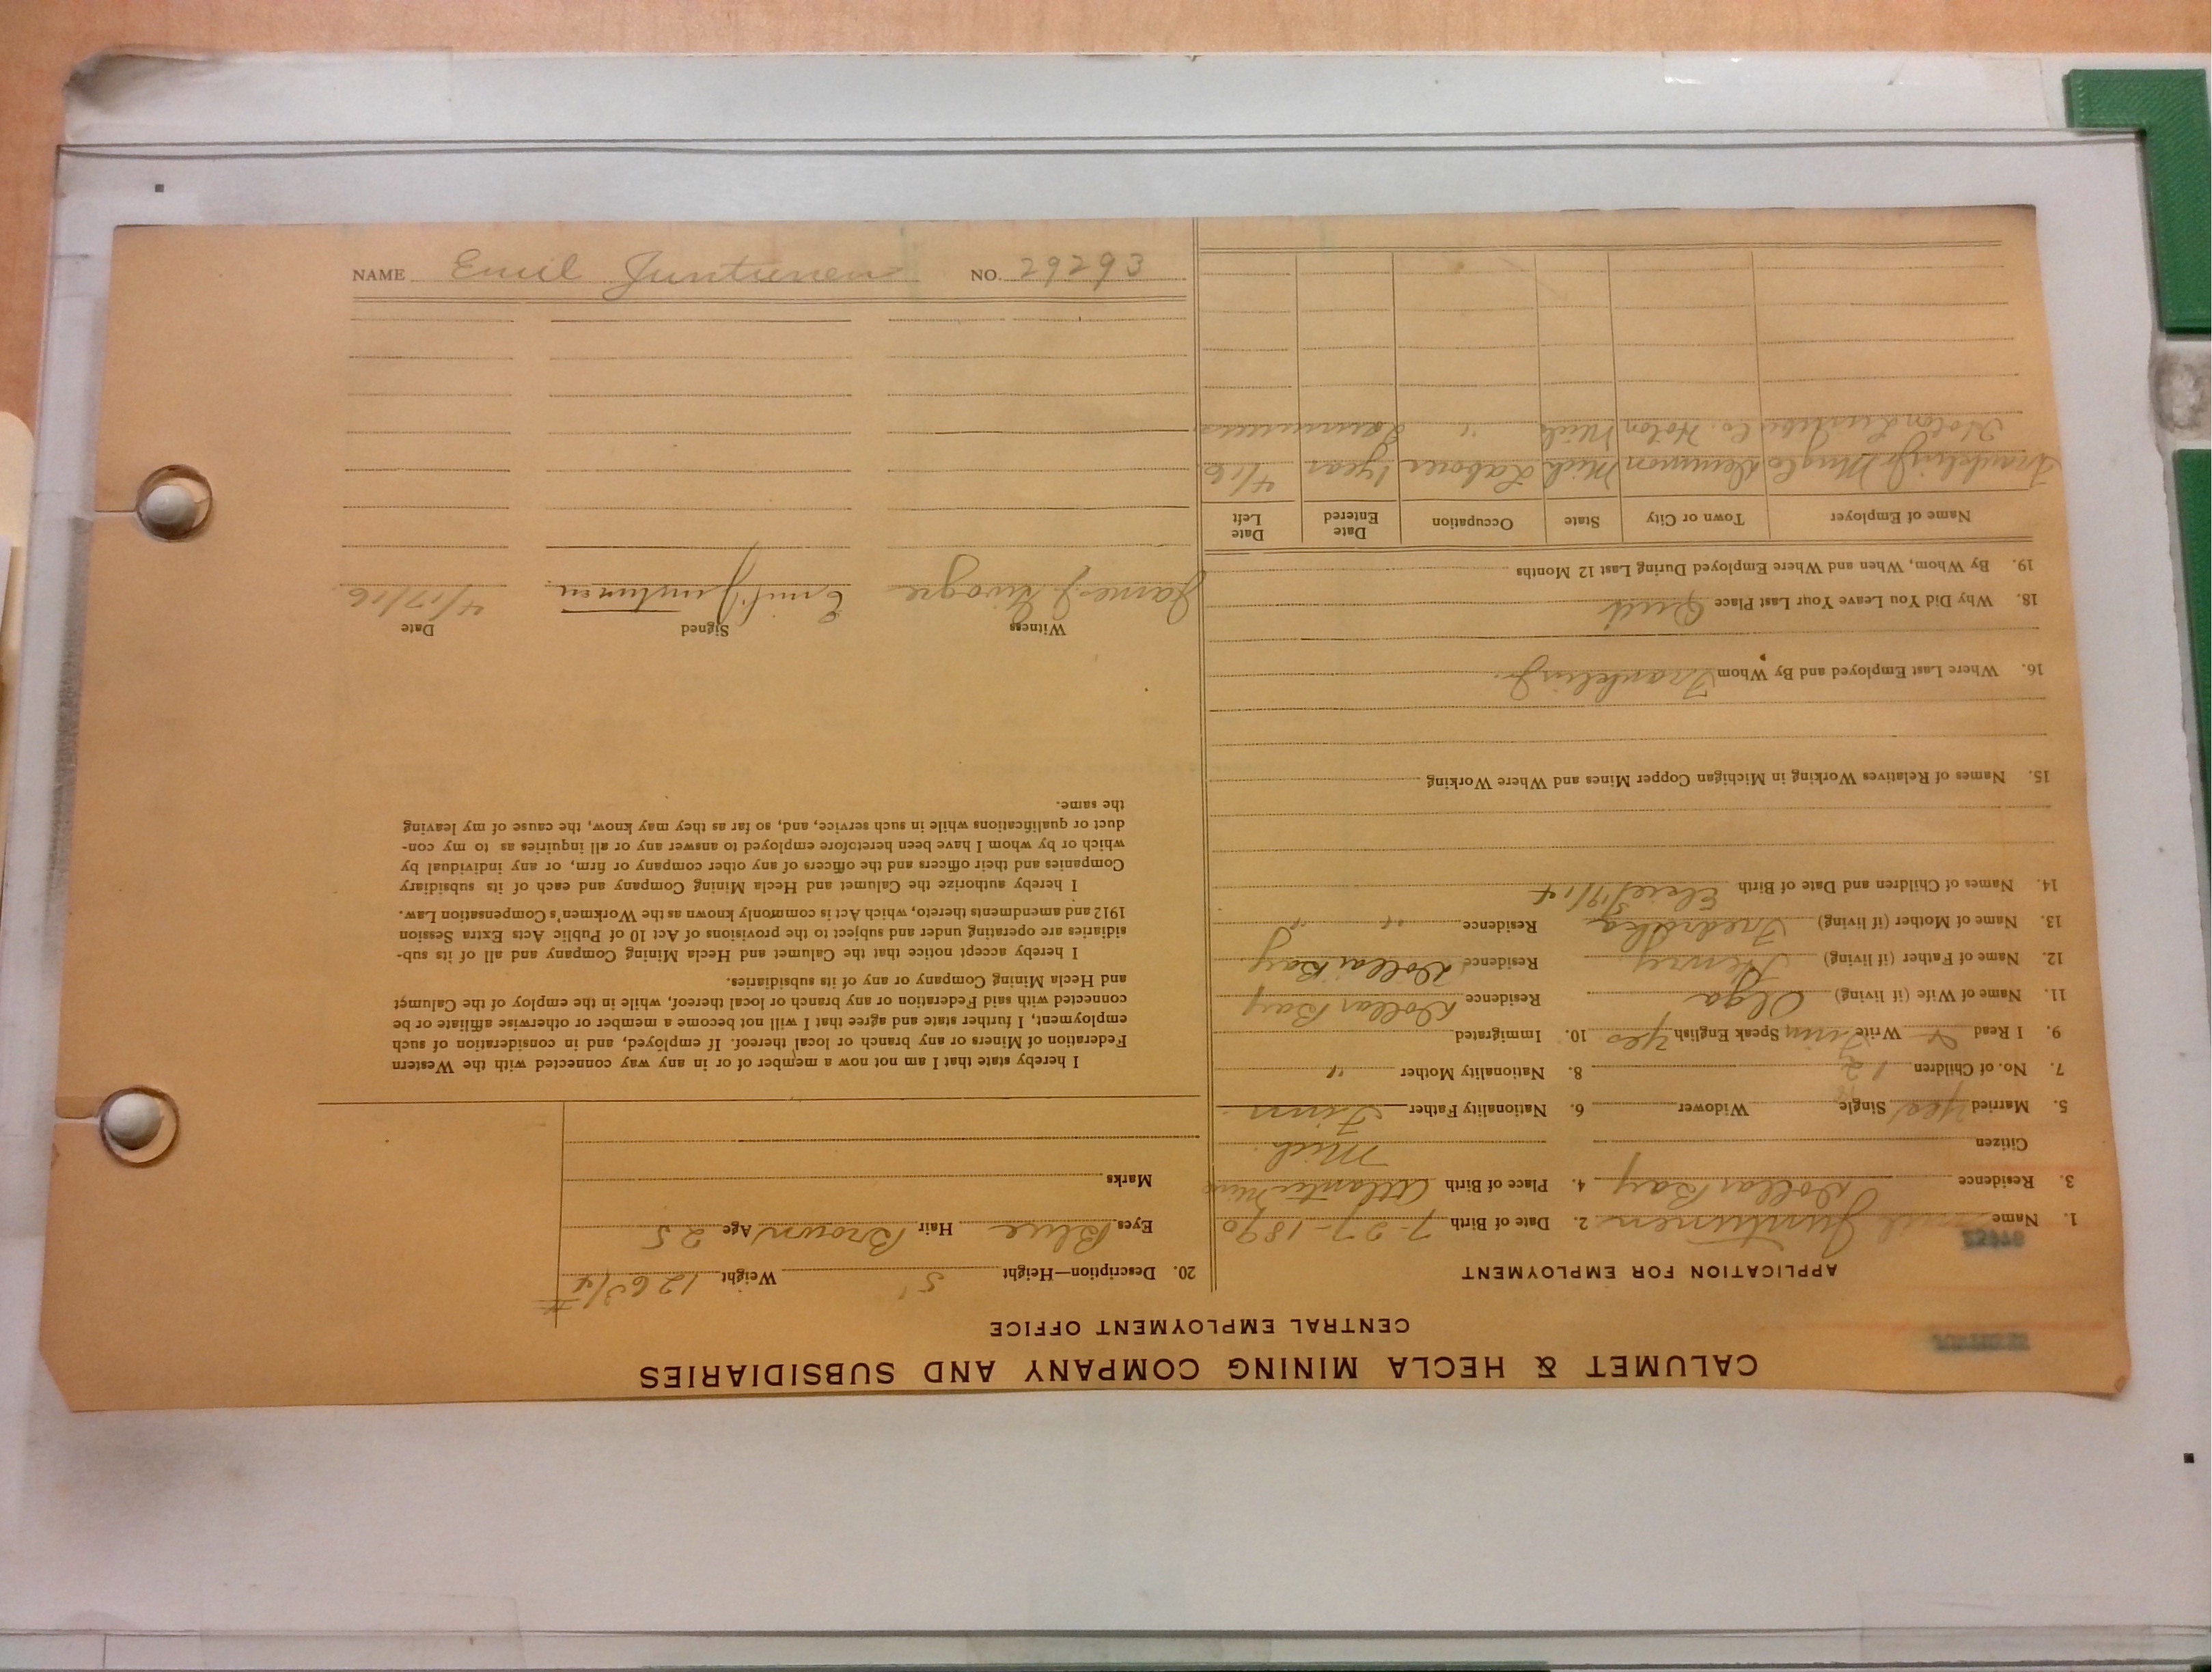 CALUMET & HECLA MINING COMPANY AND SUBSIDIARIES
CENTRAL EMPLOYMENT OFFICE
APPLICATION FOR EMPLOYMENT
1. Name Emil Juntunen 2. Date of Birth 7-27-1890
3. Residence Dollar Bay 4. Place of Birth Atlantic Mine
Citizen Mich.
5. Married Yes Single Widower 6. Nationality Father Finn
7. No. of Children 8. Nationality Mother "
9. I Read & Write Finn Speak English Yes 10. Immigrated
11. Name of Wife (if living) Olga Residence Dollar Bay
12. Name of Father (if living) Henry Residence Dollar Bay
13. Name of Mother (if living) Residence " "
14. Names of Children and Date of Birth
15. Names of Relatives Working in Michigan Copper Mines and Where Working
16. Where Last Employed and By Whom Franklin Jr.
18. Why Did You Leave Your Last Place Quit
19. By Whom, When and Where Employed During Last 12 Months
Name of Employer Town or City State Occupation Date Entered Date Left
Franklin Jr Mng Co Demmon Mich Laborer 1 year 4/16
Lumber Co. Mich "
20. Description—Height 5' Weight 126 3/4 #
Eyes Blue Hair Brown Age 25
Marks
I hereby state that I am not now a member of or in any way connected with the Western
Federation of Miners or any branch or local thereof. If employed, and in consideration of such
employment, I further state and agree that I will not become a member or otherwise affiliate or be
connected with said Federation or any branch or local thereof, while in the employ of the Calumet
and Hecla Mining Company or any of its subsidiaries.
I hereby accept notice that the Calumet and Hecla Mining Company and all of its sub-
sidiaries are operating under and subject to the provisions of Act 10 of Public Acts Extra Session
1912 and amendments thereto, which Act is commonly known as the Workmen's Compensation Law.
I hereby authorize the Calumet and Hecla Mining Company and each of its subsidiary
Companies and their officers and the officers of any other company or firm, or any individual by
which or by whom I have been heretofore employed to answer any or all inquiries as to my con-
duct or qualifications while in such service, and, so far as they may know, the cause of my leaving
the same.
Witness Signed Date
James J. Emil Juntunen 4/17/16
NAME Emil Juntunen NO. 29293